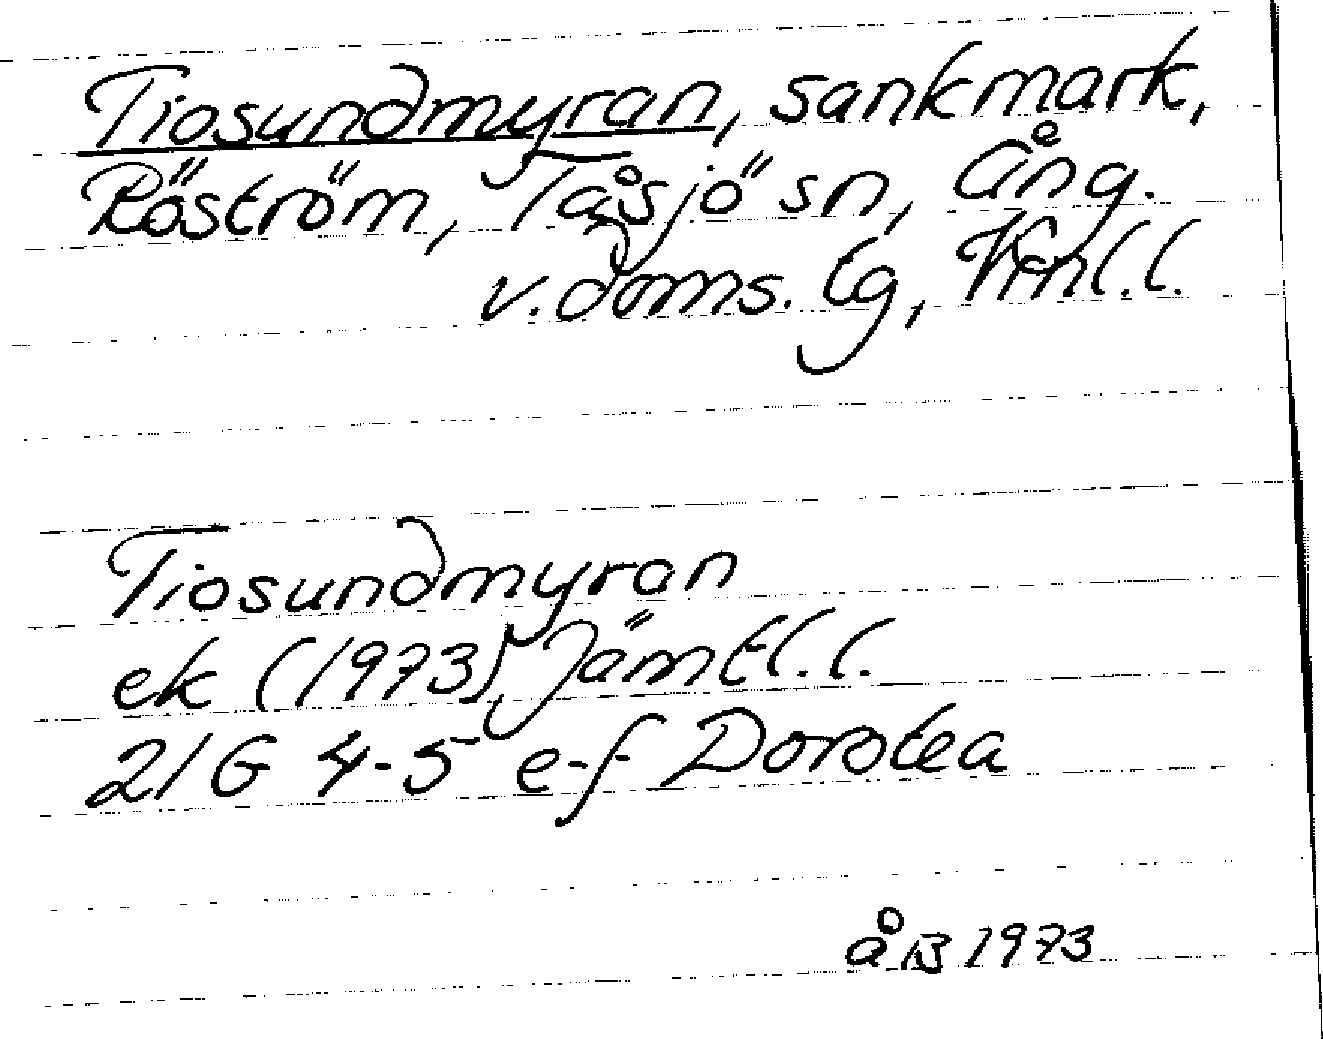 Tiosundmyran, sankmark,
Röström, Tåsjö sn, Ång.
v. doms. lg, Vrnl.l.
Tiosundmyran
ek (1973), Jämtl.l.
21G 4-5 e-f Dorotea
åB 1973